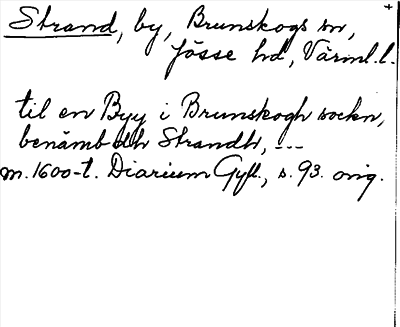 Strand, by, Brunskogs sn,
Jösse hd, Värml. l.
til en Byy i Brunskogh sockn,
benämbdh Strandh, ---
m. 1600-t. Diarium Gyll., s. 93. orig.